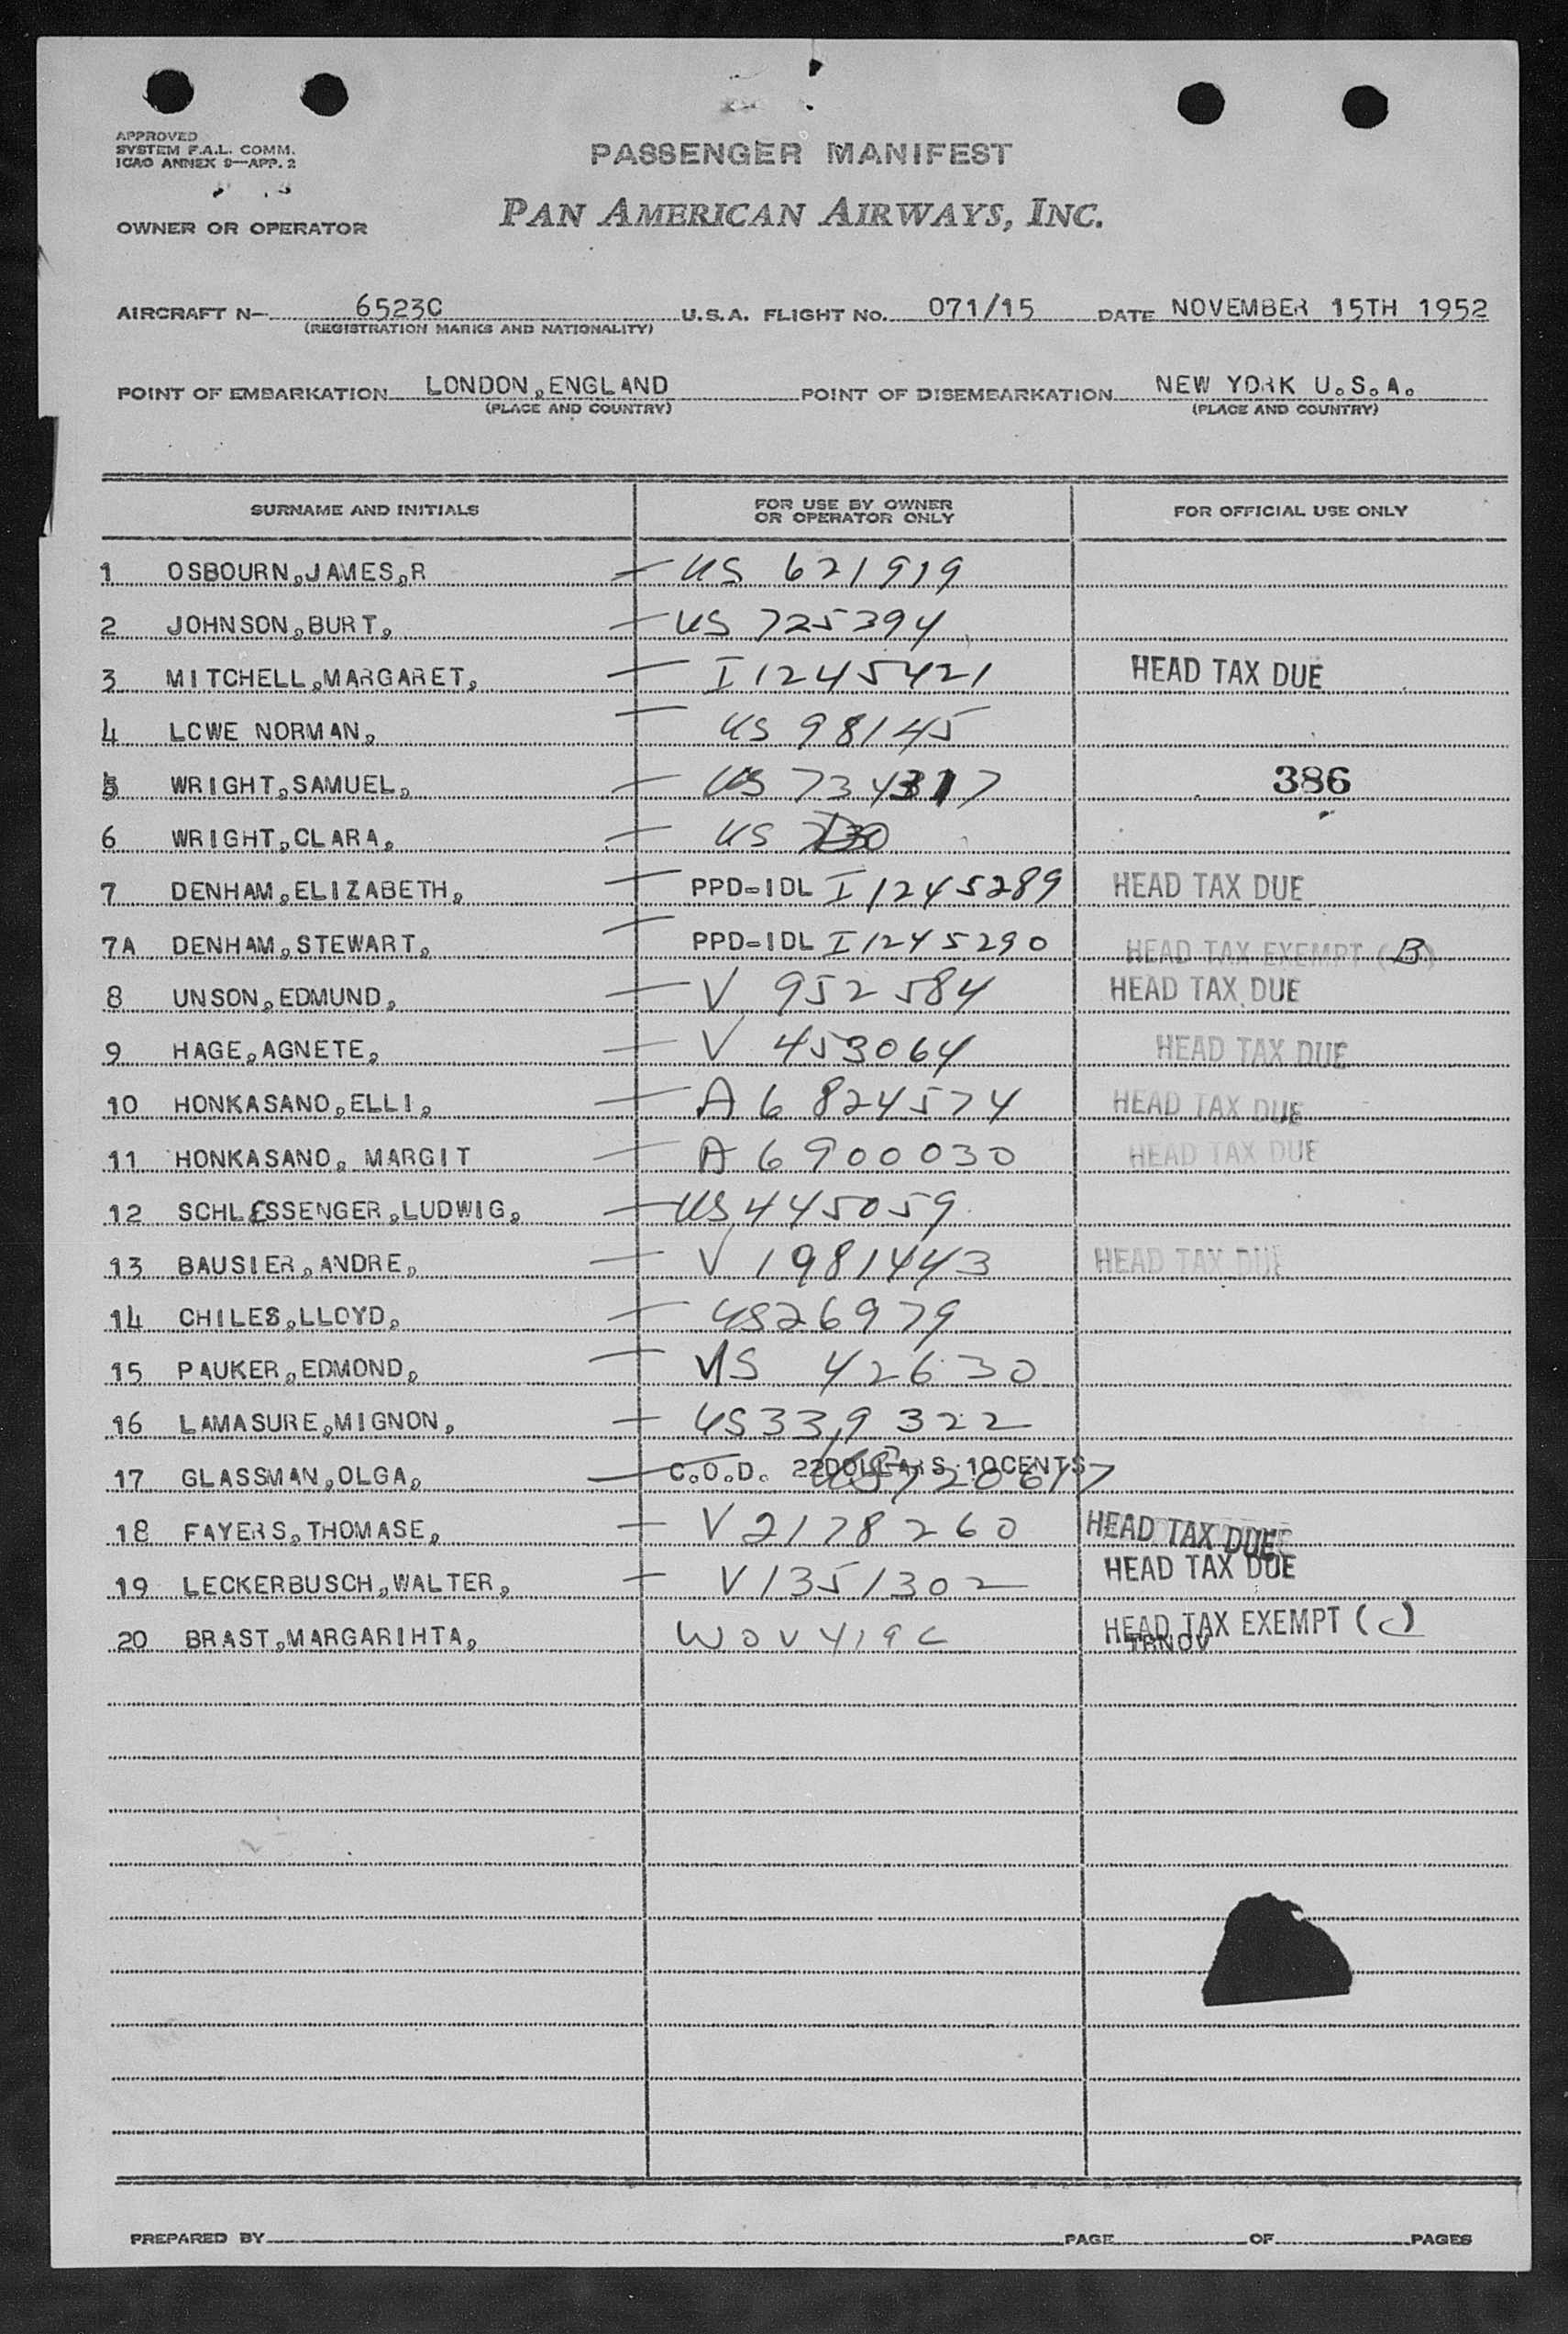 APPROVED
SYSTEM F.A.L. COMM.
ICAO ANNEX 9—APP. 2
PASSENGER MANIFEST
OWNER OR OPERATOR
PAN AMERICAN AIRWAYS, INC.
AIRCRAFT N- 6523C U.S.A. FLIGHT NO. 071/15 DATE NOVEMBER 15TH 1952
(REGISTRATION MARKS AND NATIONALITY)
POINT OF EMBARKATION LONDON,ENGLAND POINT OF DISEMBARKATION NEW YORK U.S.A.
(PLACE AND COUNTRY) (PLACE AND COUNTRY)
SURNAME AND INITIALS FOR USE BY OWNER OR OPERATOR ONLY FOR OFFICIAL USE ONLY
1 OSBOURN,JAMES,R — US 621919
2 JOHNSON,BURT, — US 725394
3 MITCHELL,MARGARET, — I 1245421 HEAD TAX DUE
4 LCWE NORMAN, — US 98145
5 WRIGHT,SAMUEL, — US 734317 386
6 WRIGHT,CLARA, — US
7 DENHAM,ELIZABETH, — PPD-IDL I 1245289 HEAD TAX DUE
7A DENHAM,STEWART, — PPD-IDL I 1245290 HEAD TAX EXEMPT (B)
8 UNSON,EDMUND, — V 952584 HEAD TAX DUE
9 HAGE,AGNETE, — V 453064 HEAD TAX DUE
10 HONKASANO,ELLI, — A 6 824574 HEAD TAX DUE
11 HONKASANO, MARGIT — A 6900030 HEAD TAX DUE
12 SCHLESSENGER,LUDWIG, — US 445059
13 BAUSIER,ANDRE, — V 1981443 HEAD TAX DUE
14 CHILES,LLOYD, — US26979
15 PAUKER,EDMOND, — US 42630
16 LAMASURE,MIGNON, — US 339322
17 GLASSMAN,OLGA, — C.O.D. 22DOLLARS 10CENTS
18 FAYERS,THOMASE, — V 2178260 HEAD TAX DUE
19 LECKERBUSCH,WALTER, — V 1351302 HEAD TAX DUE
20 BRAST,MARGARIHTA, HEAD TAX EXEMPT (C)
PREPARED BY PAGE OF PAGES